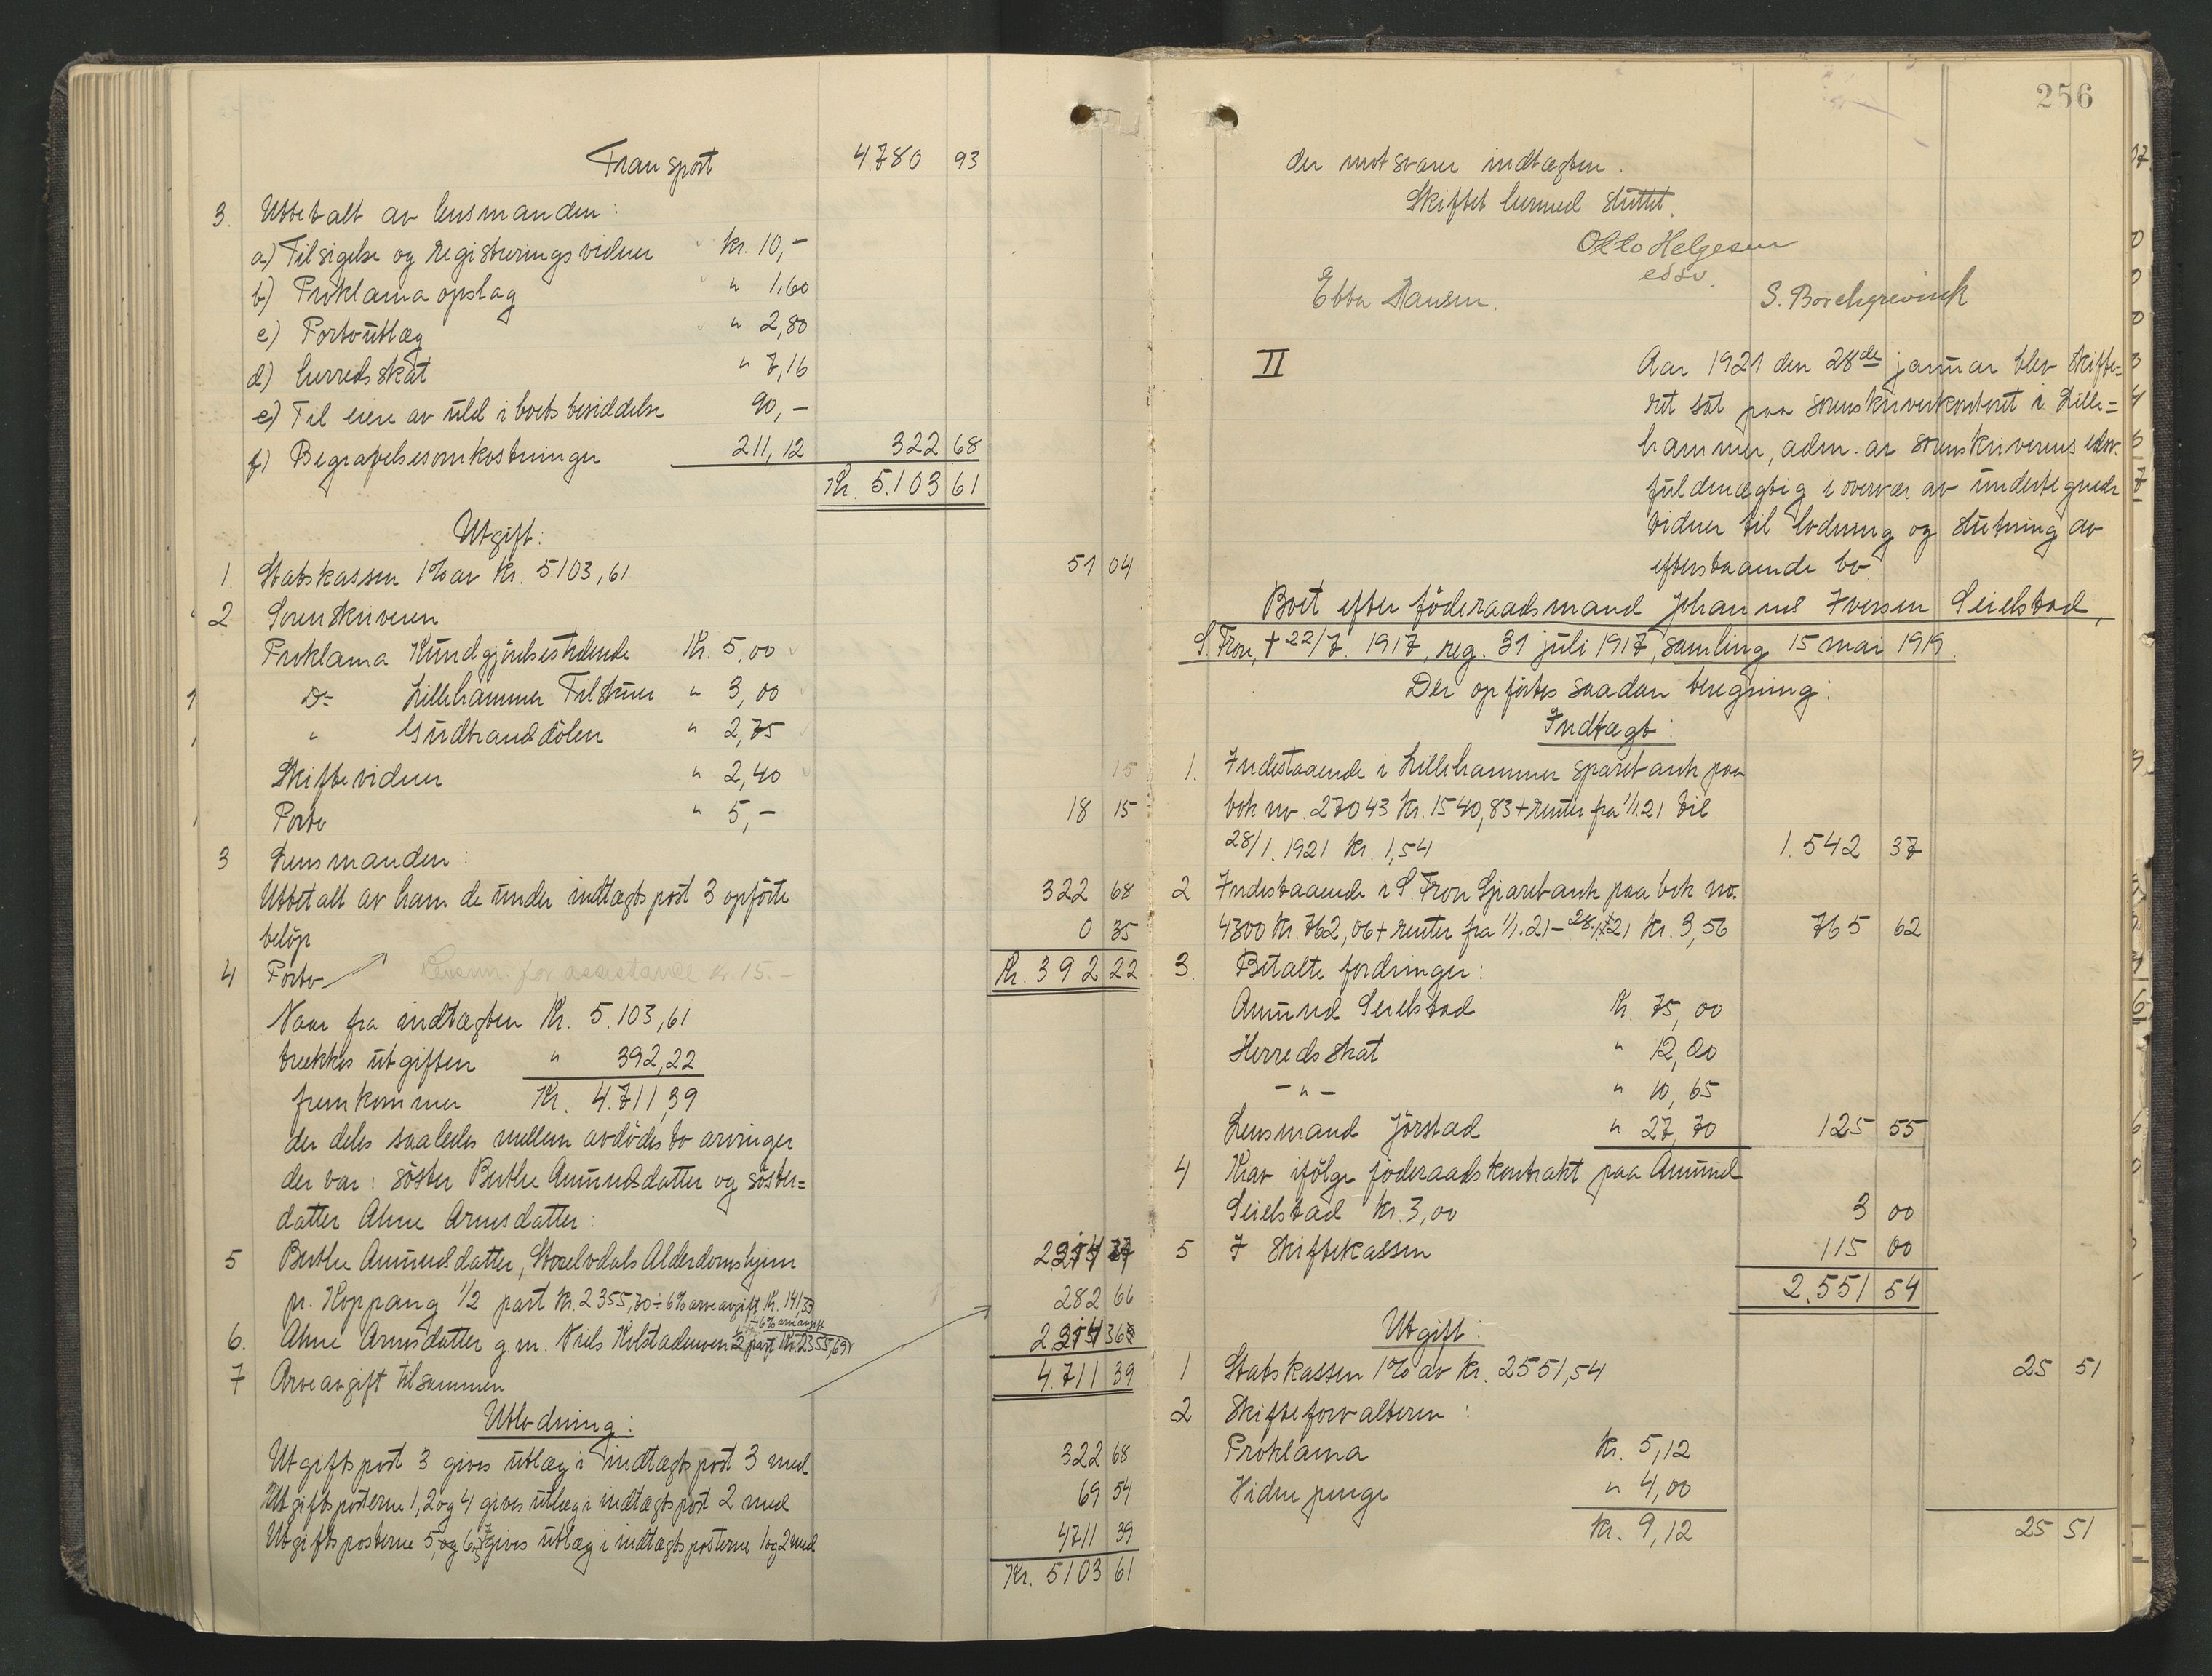 Transport 4.780 93
3. Utbetalt av lensmanden:
a) Tilsigelse og registreringsvidner kr. 10,-
b) Proklama opslag " 1,60
c) Portoutlæg " 2,80
d) herredsskat " 7,16
e) Til eiere av uld i boets besiddelse 90,-
f) Begravelsesomkostninger 211,12 322 68
Kr. 5.103 61
Utgift:
1. Statskassen 1% av Kr. 5103,61 51 04
2 Sorenskriveren
Proklama Kundgjørelsestidende Kr. 5,00
Do Lillehammer Tilskuer " 3,00
" Gudbrandsdølen " 2,75
Skiftevidner " 2,40 15
Porto " 5,- 18 15
3 Lensmanden:
Utbetalt av ham de under indtægtspost 3 opförte 322 68
belöp 0 35
4 Porto Lensm. for assistanse kr. 15.- Kr. 392 22
Naar fra indtægten Kr. 5.103,61
trækkes utgiften " 392,22
fremkommer Kr. 4.711,39
der deles saaledes mellem avdödes to arvinger
der var: söster Berthe Amundsdatter og söster=
datter Ahne Arnesdatter:
5 Berthe Amundsdatter, Storelvdals Alderdomshjem
pr. Koppang 1/2 part Kr. 2355,70 ÷ 6% arveavgift Kr. 141,33 282 66
6. Ahne Arnesdatter g.m. Nils Kolstadmoen 1/2 part Kr. 2355,69 ÷ 6% arveavgift
7 Arveavgift tilsammen 4.711 39
Utlodning:
Utgiftspost 3 gives utlæg i indtægtspost 3 med 322 68
Utgiftsposterne 1, 2 og 4 gives utlæg i indtægtspost 2 med 69 54
Utgiftsposterne 5, og 6 og 7 gives utlæg i indtægtsposterne 1 og 2 med 4711 39
Kr. 5103 61
256
der motsvarer indtægten.
Skiftet hermed sluttet.
Otto Helgesen
edsv.
Ebba Hansen. S. Borchgrevink
II Aar 1921 den 28de januar blev skifte=
ret sat paa sorenskriverkontoret i Lille=
hammer, adm. av sorenskriverens edsv.
fuldmægtig i overvær av undertegnede
vidner til lodning og slutning av
efterstaaende bo
Boet efter föderaadsmand Johannes Iversen Seielstad,
S. Fron, † 22/7. 1917, reg. 31 juli 1917, samling 15 mai 1919.
Der opförtes saadan beregning:
Indtægt:
1. Indestaaende i Lillehammer sparebank paa
bok nr. 27043 Kr. 1540,83 + renter fra 1/1.21 til
28/1. 1921 Kr. 1,54 1.542 37
2 Indestaaende i S. Fron Sparebank paa bok no.
4300 Kr. 762,06 + renter fra 1/1.21 - 28/1.21 Kr. 3,56 765 62
3. Betalte fordringer:
Amund Seielstad Kr. 75,00
Herredsskat " 12,20
- " - " 10,65
Lensmand Jörstad " 27,70 125 55
4 Krav ifölge föderaadskontrakt paa Amund
Seielstad Kr. 3,00 3 00
5 I skiftekassen 115 00
2.551 54
Utgift:
1 Statskassen 1% av Kr. 2551,54 25 51
2 Skifteforvalteren:
Proklama Kr. 5,12
Vidnepenge " 4,00
Kr. 9,12 25 51